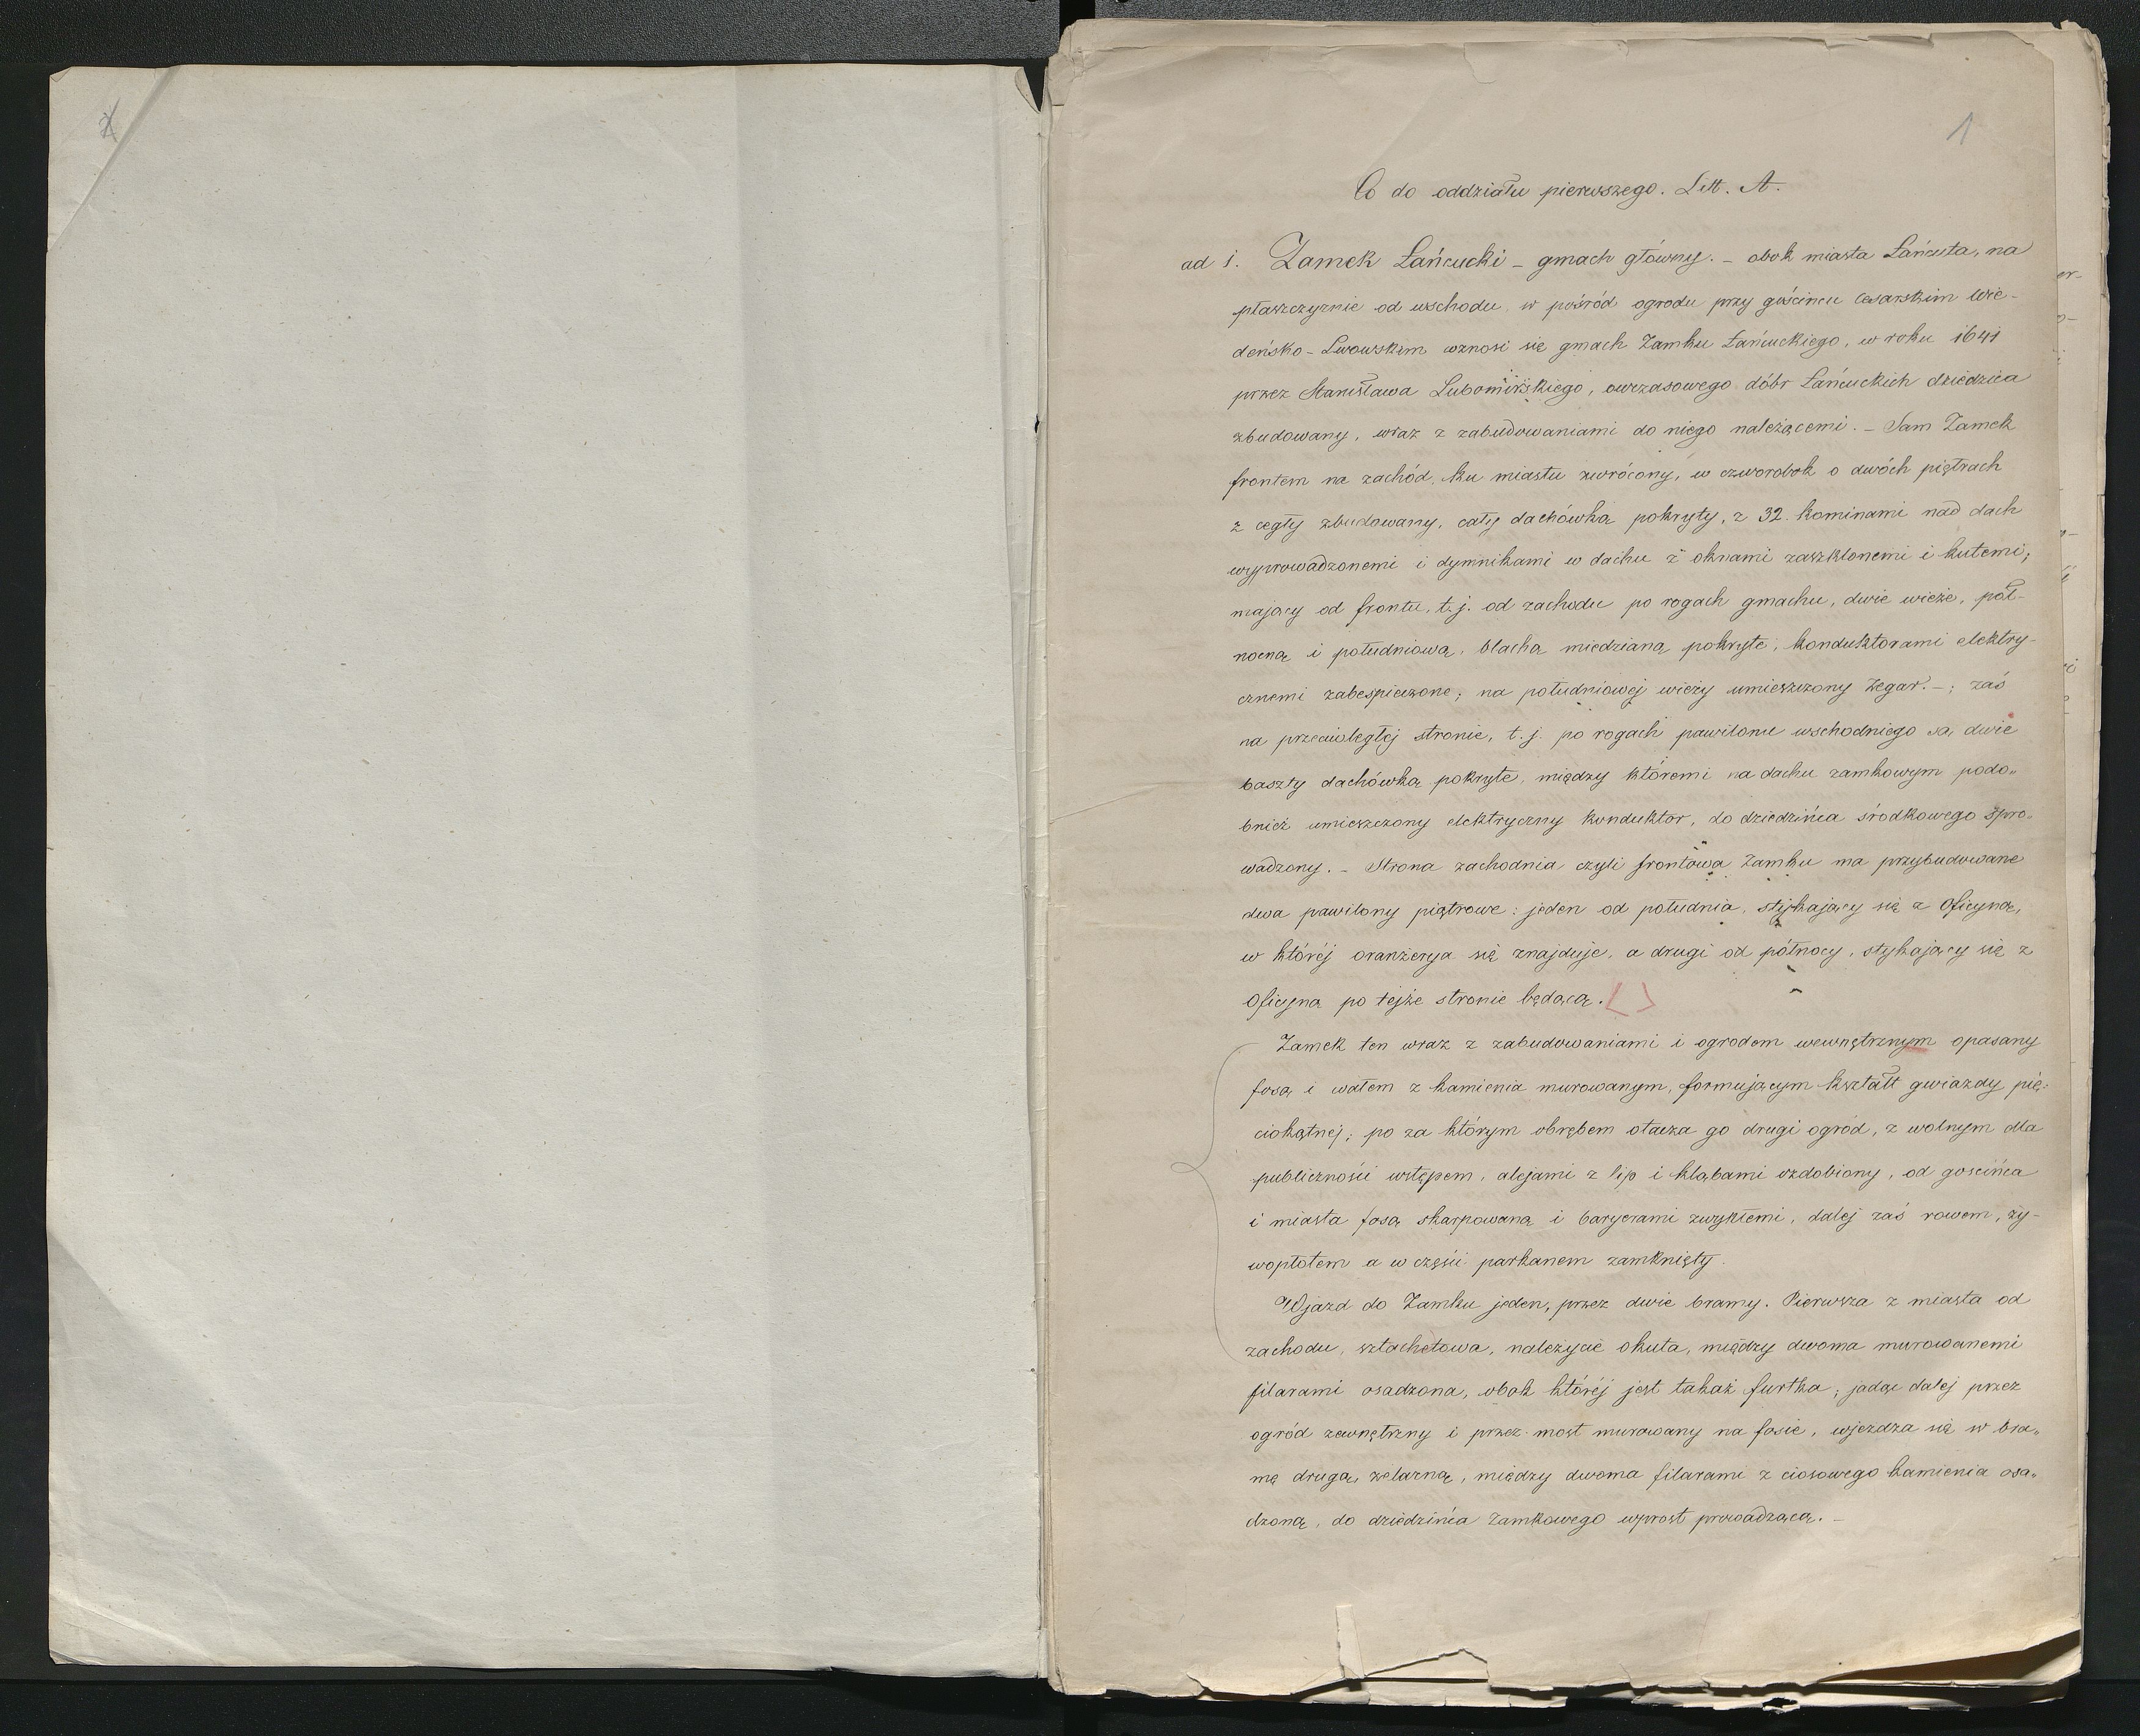 1
Co do oddziału pierwszego. Litt. A.
ad 1. Zamek Łańcucki – gmach główny. – obok miasta Łańcuta, na
płaszczyznie od wschodu w pośród ogrodu przy gościńcu cesarskim Wie-
deńsko-Lwowskim wznosi się gmach Zamku Łańcuckiego, w roku 1641
przez Stanisława Lubomirskiego, owczasowego dóbr Łańcuckich dziedzica
zbudowany, wraz z zabudowaniami do niego należącemi. – Sam Zamek
frontem na zachód, ku miastu zwrócony, w czworobok o dwóch piętrach
z cegły zbudowany, cały dachówką pokryty, z 32. kominami nad dach
wyprowadzonemi i dymnikami w dachu z oknami zaszklonemi i kutemi;
mający od frontu, t.j. od zachodu po rogach gmachu, dwie wieże, pół-
nocną i południową, blachą miedzianą pokryte, konduktorami elektry-
cznemi zabespieczone; na południowej wieży umieszczony Zegar. –; zaś
na przeciwległej stronie, t.j. po rogach pawilonu wschodniego są dwie
baszty dachówką pokryte, między któremi na dachu zamkowym podo„
bnież umieszczony elektryczny konduktor, do dziedzińca środkowego spro„
wadzony. – Strona zachodnia czyli frontowa Zamku ma przybudowane
dwa pawilony piątrowe: jeden od południa, stykający się z Oficyną,
w której oranżerya się znajduje, a drugi od północy, stykający się z
Oficyną po tejże stronie będącą. < >
Zamek ten wraz z zabudowaniami i ogrodem wewnętrznym opasany
fosą i wałem z kamienia murowanym, formującym kształt gwiazdy pię-
ciokątnej; po za którym obrębem otacza go drugi ogród, z wolnym dla
publiczności wstępem, alejami z lip i kląbami ozdobiony, od gościńca
i miasta fosą skarpowaną i baryerami zwykłemi, dalej zaś rowem, ży-
wopłotem a w części parkanem zamknięty.
Wjazd do Zamku jeden, przez dwie bramy. Pierwsza z miasta od
zachodu, sztachetowa, należycie okuta, między dwoma murowanemi
filarami osadzona, obok której jest takaż furtka; jadąc dalej przez
ogród zewnętrzny i przez most murowany na fosie, wjezdza się w bra„
mę drugą, żelazną, między dwoma filarami z ciosowego kamienia osa„
dzoną, do dziedzińca Zamkowego wprost prowadzącą. –